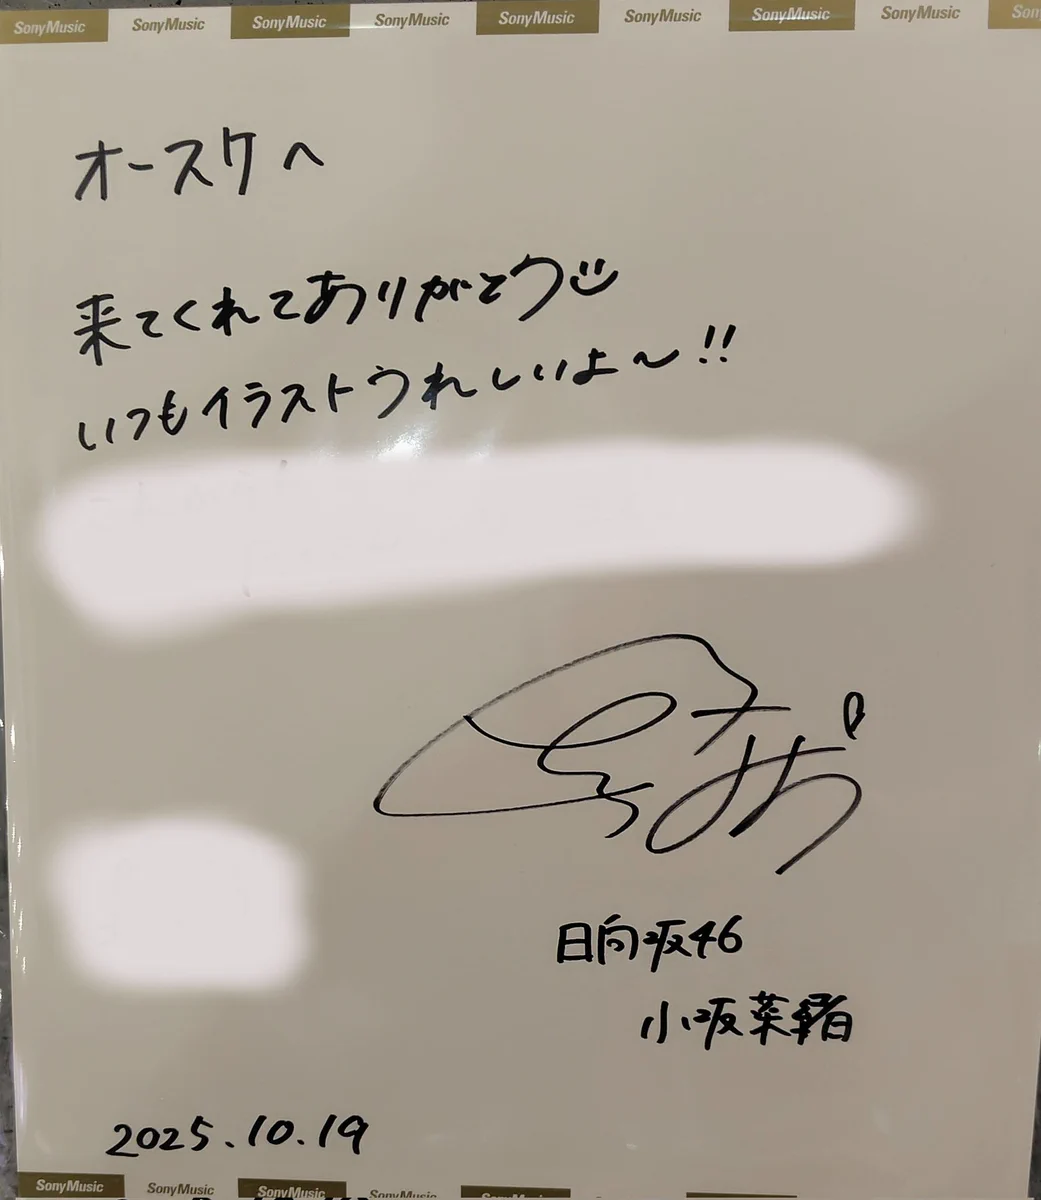 SonyMusic SonyMusic SonyMusic SonyMusic SonyMusic SonyMusic SonyMusic SonyMusic Son
オースケへ
来てくれてありがとう
いつもイラストうれしいよ〜!!
日向坂46
小坂菜緒
2025.10.19
SonyMusic SonyMusic SonyMusic SonyMusic SonyMusic